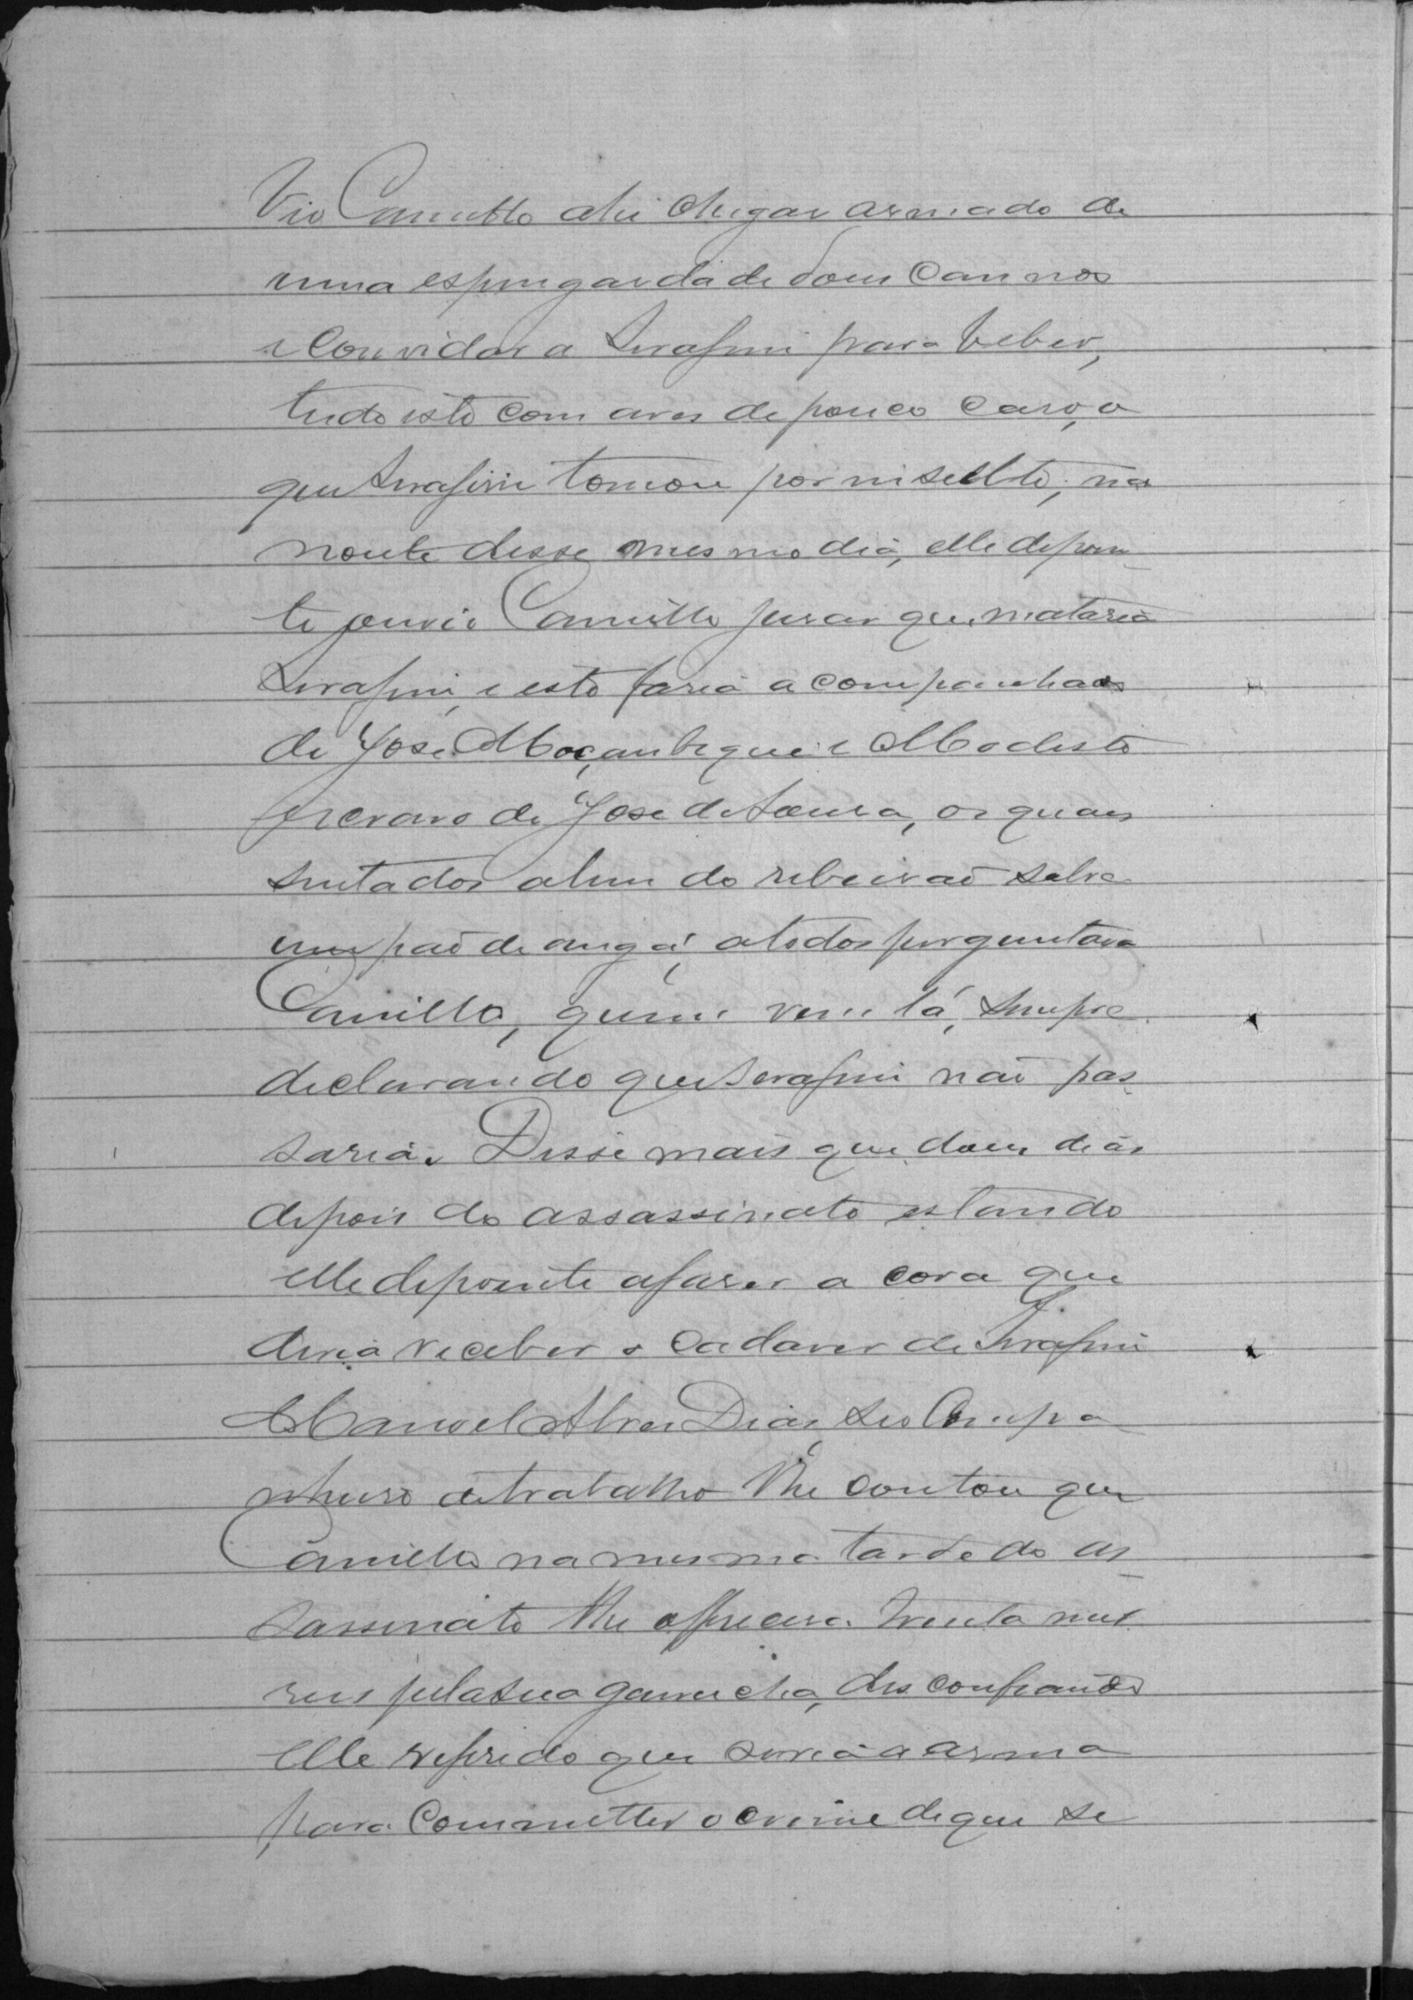 Vio Camillo ahi chegar armado de
uma espingarda de dous cannos
e convidar a Serafim para beber,
tudo isto com ares de pouco caso, o
que Serafim tomou por insulto; na
noute desse mesmo dia, elle depoen-
te ouvio Camillo jurar que mataria
Serafim, e isto faria acompanhado
de José Moçambique e Modesto
escravo de José de Souza, os quaes
sentados alem do ribeirão sobre
um pao de angá, a todos perguntava
Camillo, quem vem lá, sempre
declarando que Serafim não pas-
saria. Disse mais que dous dias
depois do assassinato estando
elle depoente a faser a cova que
devia receber o cadaver de Serafim
Manoel Alves Dias, seo compa
nheiro de trabalho lhe contou que
Camillo na mesma tarde do as-
sassinato lhe offrecera trenta mil
reis pela sua garrucha, desconfiando
elle referido que seria a arma
para commetter o crime de que se